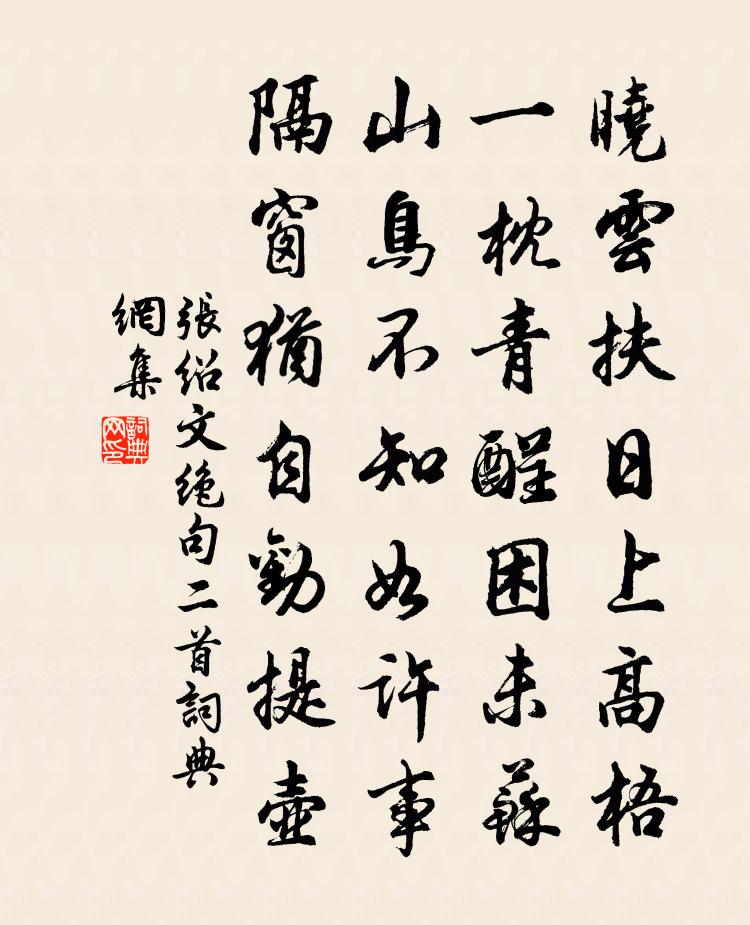 曉雲扶日上高梧
一枕青醒困未蘇
山鳥不知如許事
隔窗猶自勸提壺
張紹文絕句二首詞典
網集
詞典
网印